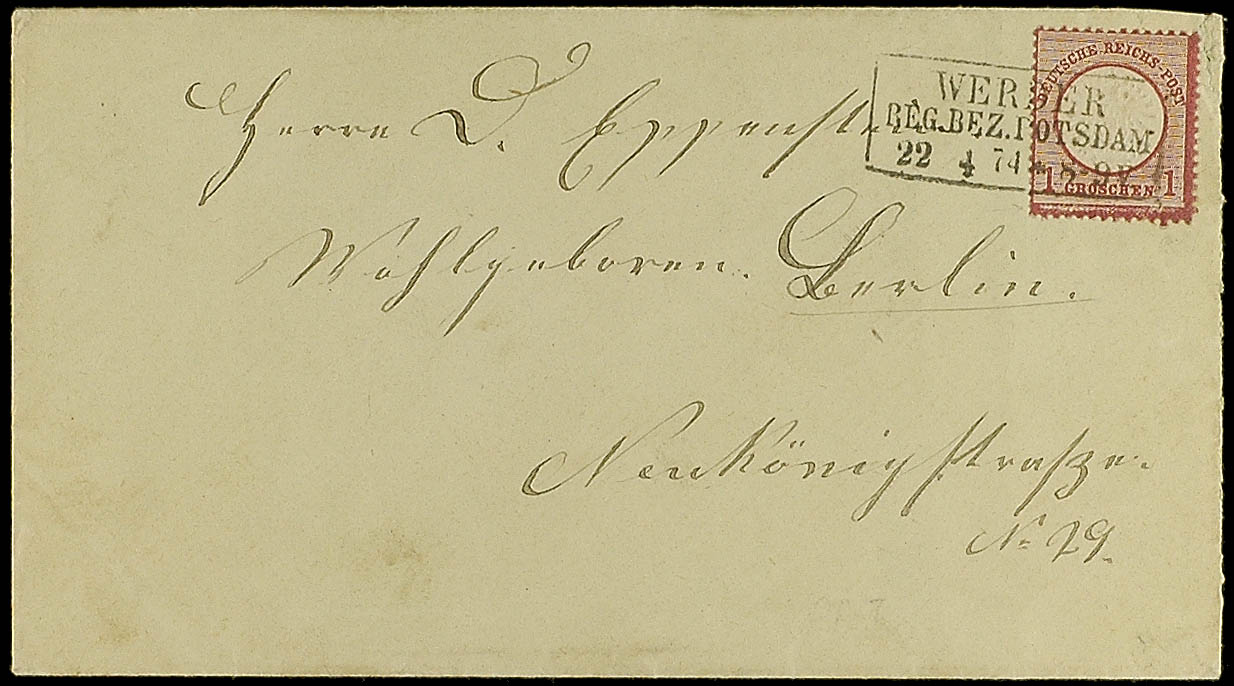 Herrn D. Eppenstein
Wohlgeboren. Berlin.
Neukönigstraße.
No 29.
WERDER
REG.BEZ.POTSDAM
22 4 74 * 8-9V
DEUTSCHE REICHS-POST
1 GROSCHEN 1